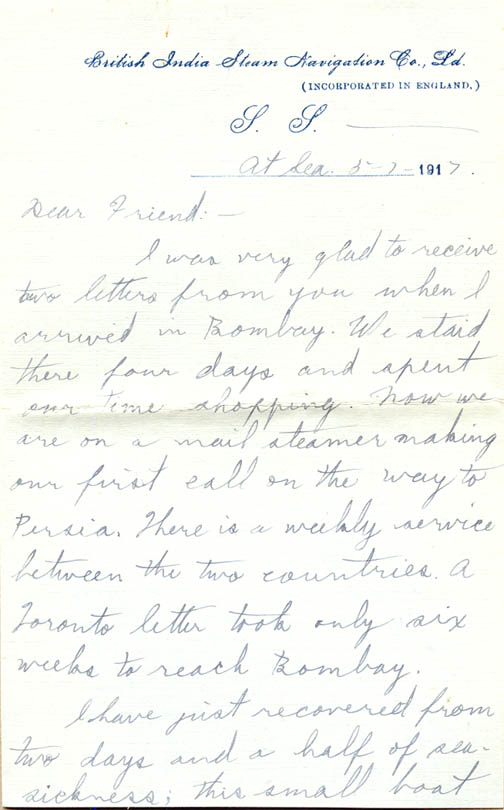 British India Steam Navigation Co., Ld.
(INCORPORATED IN ENGLAND.)
S. S.
At Sea. 5-7-1917.
Dear Friend:-
I was very glad to receive
two letters from you when I
arrived in Bombay. We staid
there four days and spent
our time shopping. Now we
are on a mail steamer making
our first call on the way to
Persia. There is a weekly service
between the two countries. A
Toronto letter took only six
weeks to reach Bombay.
I have just recovered from
two days and a half of sea-
sickness; this small boat